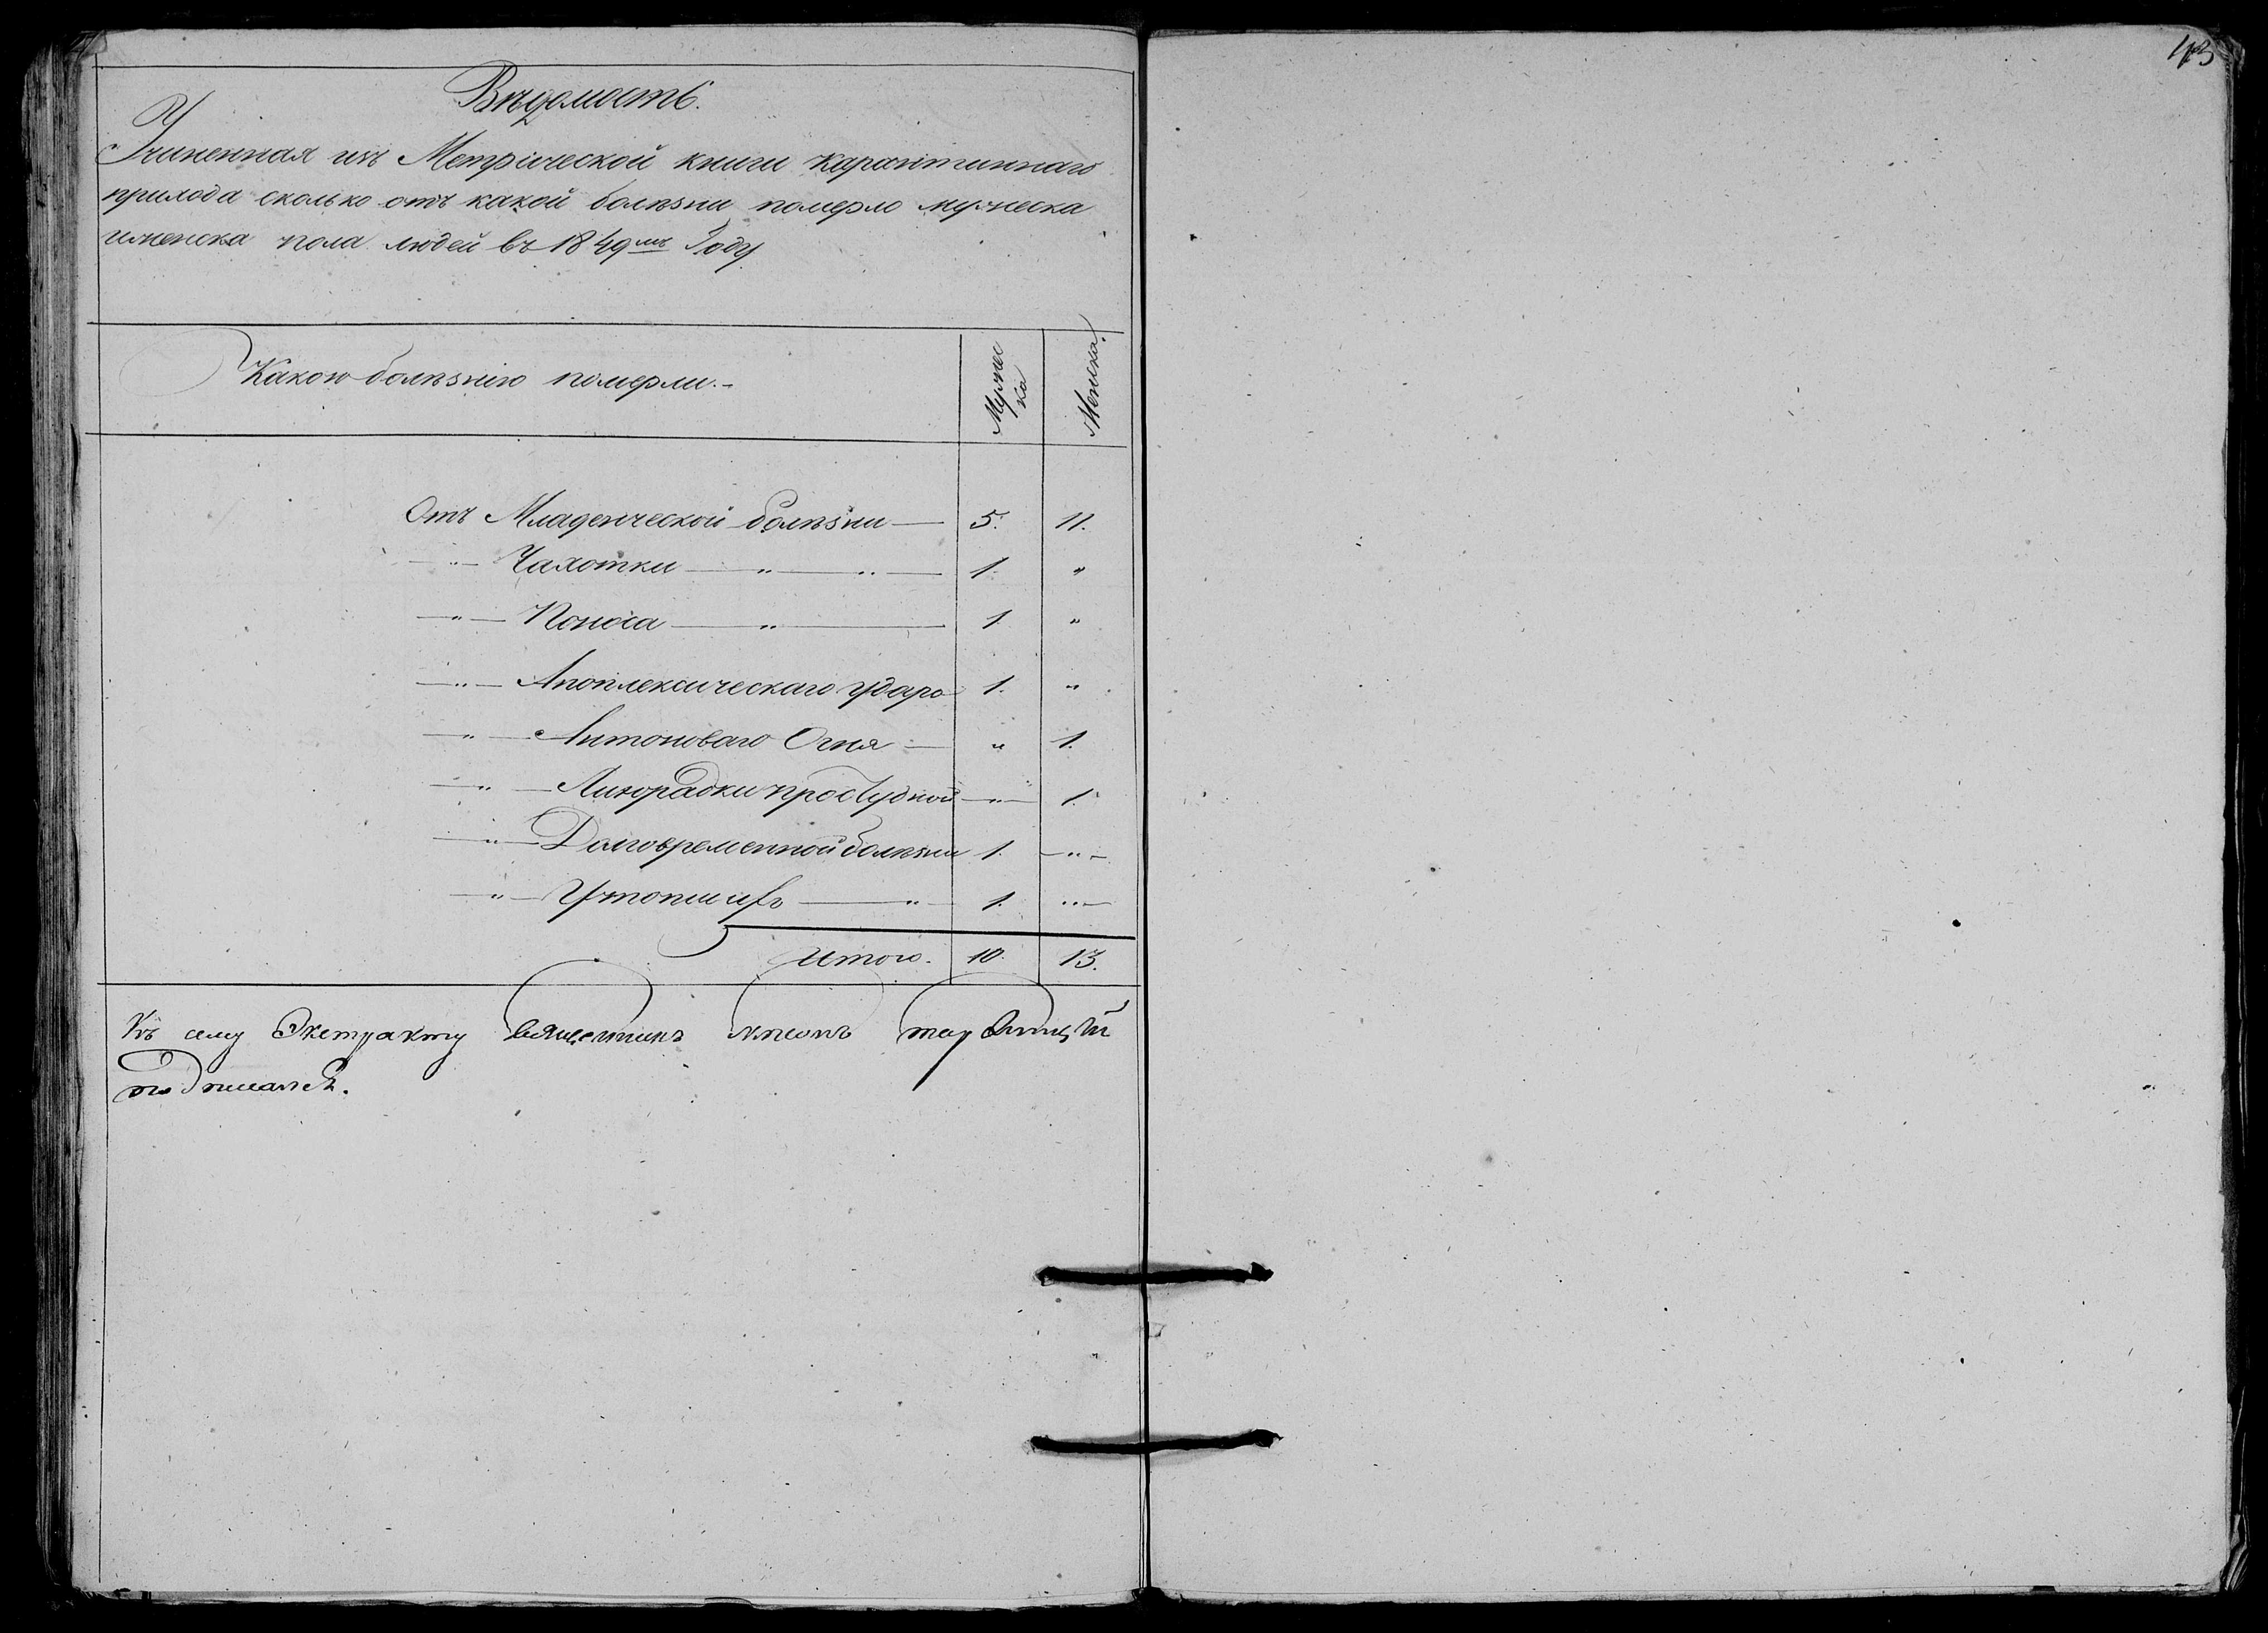 43
Вѣдомость.
Учиненная изъ Метрической книги карантиннаго
прихода сколько отъ какой болѣзни померло мужеска
и женска пола людей въ 1849мъ Году
Какою болѣзнію померли.-
Мужес
ка
Женска
Отъ Младенческой болѣзни — 5. 11.
—"— Чахотки —"—"— 1. "
—"— Поноса —"— 1. "
—"— Апоплексическаго удара 1. "
—"— Антоноваго Огня — " 1.
—"— Лихорадки простудной —"— 1.
—"— Долговременной болѣзни 1. —"—
—"— Утопшихъ —"— 1. "—
Итого. 10. 13.
Къ сему Экстракту священникъ
подписался.